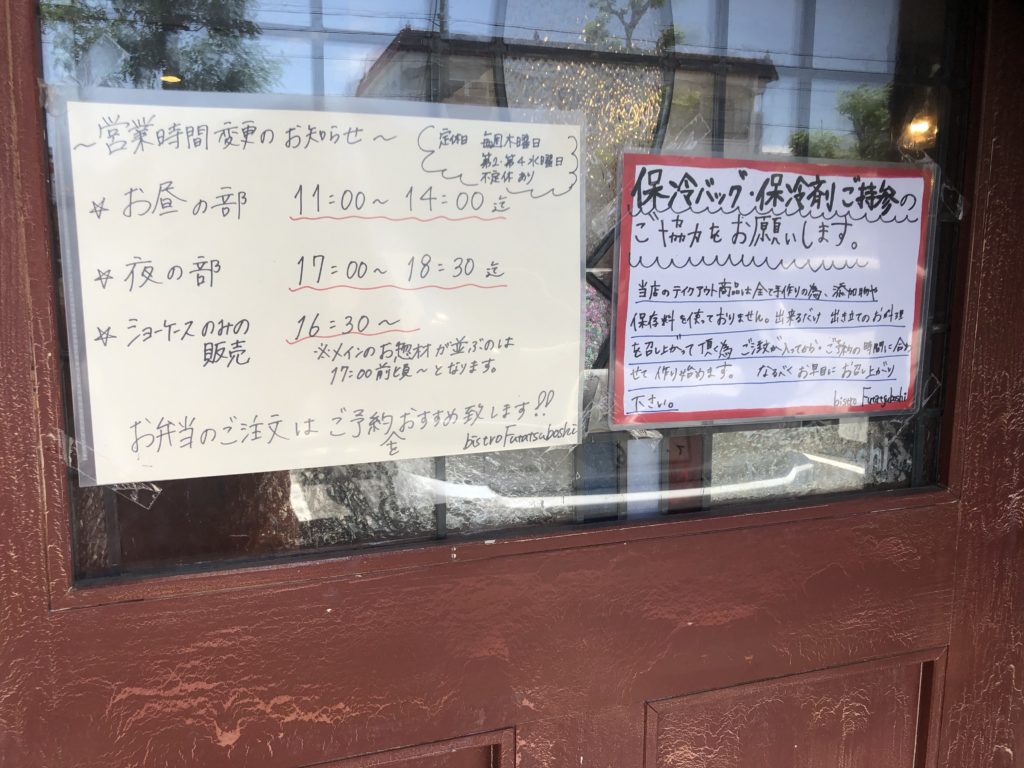 ～営業時間変更のお知らせ～
定休日 毎週木曜日
第2・第4水曜日
不定休あり
☆お昼の部 11:00～14:00迄
☆夜の部 17:00～18:30迄
☆ショーケースのみの 16:30～
販売
※メインのお惣材が並ぶのは
17:00前頃～となります。
お弁当のご注文はご予約をおすすめ致します!!
bistro Futatsuboshi
保冷バッグ・保冷剤ご持参の
ご協力をお願いします。
当店のテイクアウト商品は全て手作りの為、添加物や
保存料を使っておりません。出来るだけ出き立てのお料理
を召し上がって頂く為ご注文が入ってから・ご予約の時間に合わ
せて作り始めます。なるべくお早目にお召し上がり
下さい。
bistro Futatsuboshi